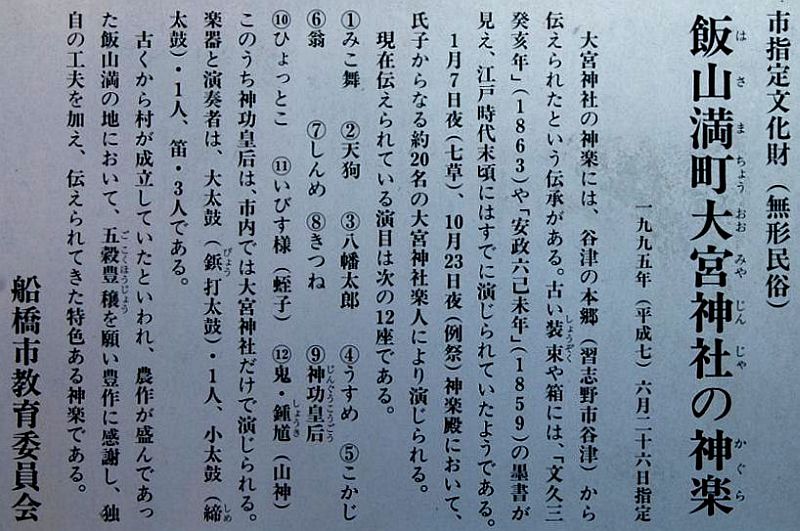 市指定文化財（無形民俗）
飯山満町大宮神社の神楽
はさまちょうおおみやじんじゃ　かぐら
一九九五年（平成七）六月二十六日指定
大宮神社の神楽には、谷津の本郷（習志野市谷津）から
伝えられたという伝承がある。古い装束や箱には、「文久三
しょうぞく
癸亥年」（1863）や「安政六己未年」（1859）の墨書が
見え、江戸時代末頃にはすでに演じられていたようである。
1月7日夜（七草）、10月23日夜（例祭）神楽殿において、
氏子からなる約20名の大宮神社楽人により演じられる。
現在伝えられている演目は次の12座である。
①みこ舞　②天狗　③八幡太郎　④うすめ　⑤こかじ
⑥翁　⑦しんめ　⑧きつね　⑨神功皇后
じんぐうこうごう
⑩ひょっとこ　⑪いびす様（蛭子）　⑫鬼・鍾馗（山神）
しょうき
このうち神功皇后は、市内では大宮神社だけで演じられる。
楽器と演奏者は、大太鼓（鋲打太鼓）・1人、小太鼓（締
びょう　しめ
太鼓）・1人、笛・3人である。
古くから村が成立していたといわれ、農作が盛んであっ
た飯山満の地において、五穀豊穣を願い豊作に感謝し、独
ごこくほうじょう
自の工夫を加え、伝えられてきた特色ある神楽である。
船橋市教育委員会